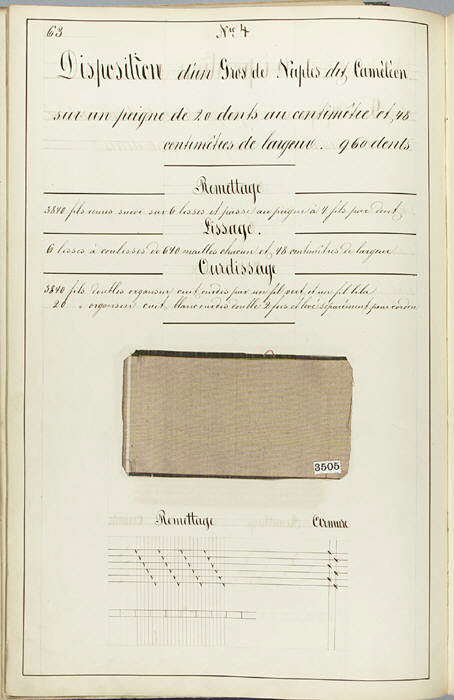 63
No 4
Disposition d'un Gros de Naples dit Caméléon
sur un peigne de 20 dents au centimètre et 48
centimètres de largeur. 960 dents
Remettage
3840 fils remis suivi sur 6 lisses et passé au peigne à 4 fils par dent
Lissage.
6 lisses à coulisses de 640 mailles chacune et 48 centimètres de largeur
Ourdissage
3840 fils doubles organsin cuit ourdis par un fil vert et un fil lila
20 " organsin cuit blanc ourdis double 2 fois et levé séparément pour cordon
3505
Remettage
Armure